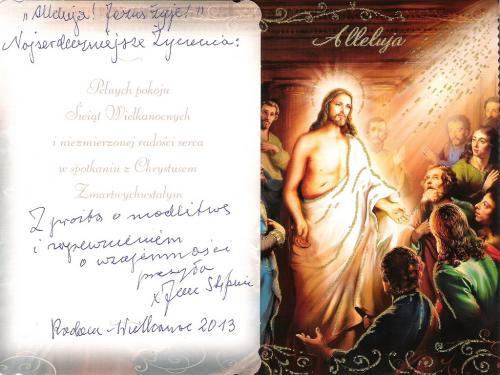 „Alleluja! Jezus żyje!"
Najserdeczniejsze życzenia:
Pełnych pokoju
Świąt Wielkanocnych
i niezmierzonej radości serca
w spotkaniu z Chrystusem
Zmartwychwstałym
Z prośbą o modlitwę
i zapewnieniem
o wzajemności
przesyła
x Jan
Wielkanoc 2013
Alleluja